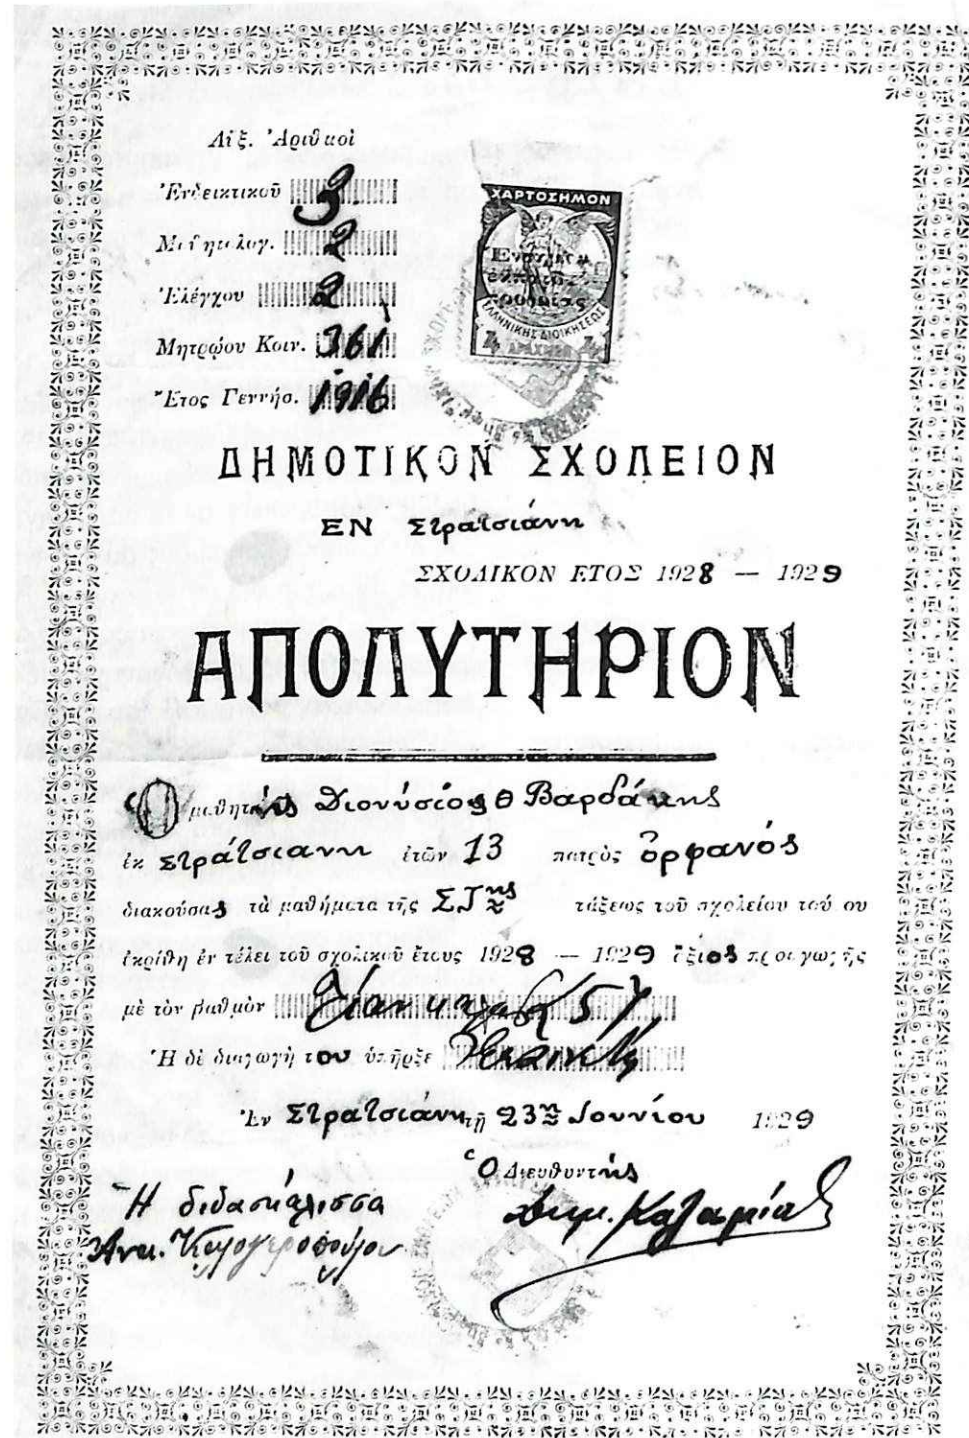 Αὔξ. Ἀριθμοὶ
Ἐνδεικτικοῦ 3
Μαθητολογ. 2
Ἐλέγχου 2
Μητρῴου Κοιν. 361
Ἔτος Γεννήσ. 1916
ΧΑΡΤΟΣΗΜΟΝ
ΕΛΛΗΝΙΚΗΣ ΔΙΟΙΚΗΣΕΩΣ
4 ΔΡΑΧΜΑΙ 4
ΔΗΜΟΤΙΚΟΝ ΣΧΟΛΕΙΟΝ
ΕΝ Στρατσιάνη
ΣΧΟΛΙΚΟΝ ΕΤΟΣ 1928 — 1929
ΑΠΟΛΥΤΗΡΙΟΝ
Ὁ μαθητής Διονύσιος Θ Βαρδάκης
ἐκ Στράτσιανη ἐτῶν 13 πατρὸς ὀρφανός
διακούσας τὰ μαθήματα τῆς ΣΤης τάξεως τοῦ σχολείου τού ου
ἐκρίθη ἐν τέλει τοῦ σχολικοῦ ἔτους 1928 — 1929 ἄξιος προαγωγῆς
μὲ τὸν βαθμὸν Λίαν καλῶς
Ἡ δὲ διαγωγὴ του ὑπῆρξε
Ἐν Στρατσιάνη τῇ 23ῃ Ιουνίου 1929
Ὁ Διευθυντής
Ἡ διδασκάλισσα
Δημ.
Καλογεροπούλου